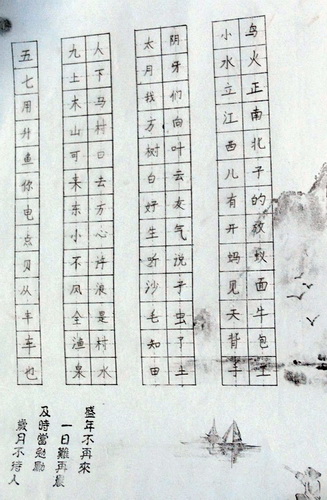 鸟火正南北子的放蚁面牛包
小水立江西儿有开蚂见天背手
阴牙们向叶云友气说子虫了土
太月我方树白好生听沙毛知田
人下马村口去方心许浪是村水
九土木山可来东小不风全渔泉
五七用升鱼你电点贝从丰车也
盛年不再來
一日難再晨
及時當勉勵
歲月不待人